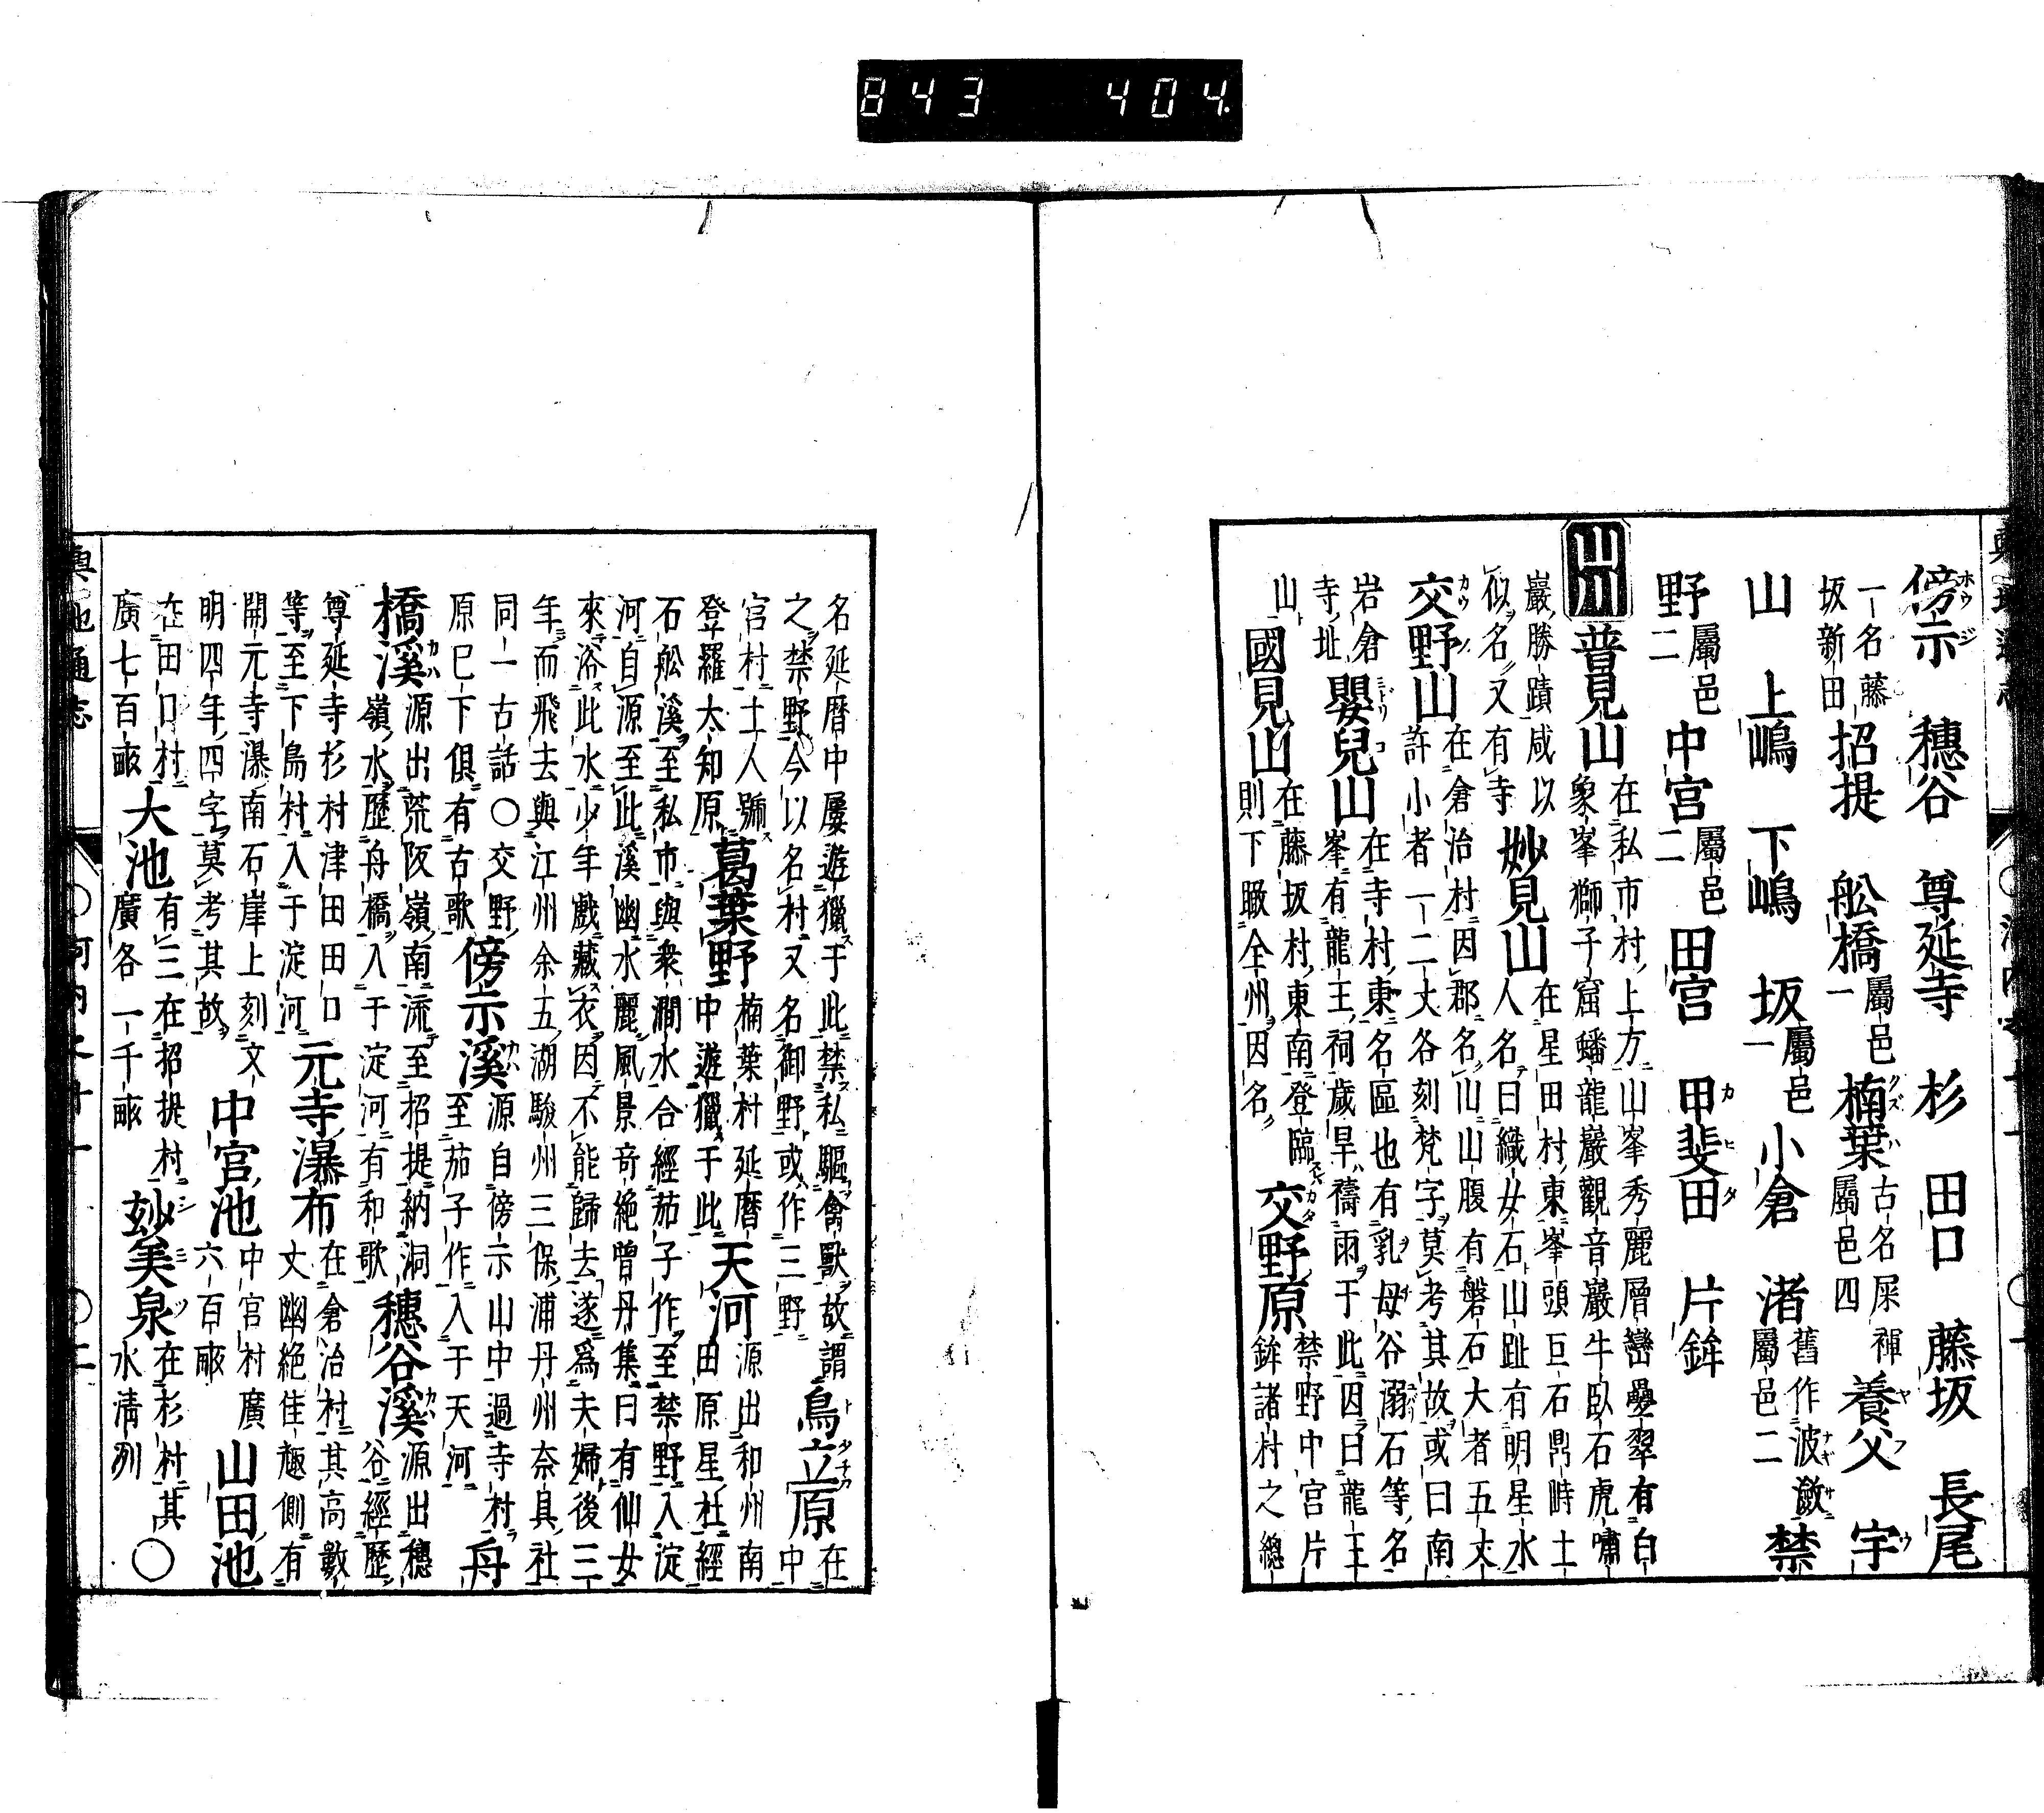 843 404
傍示 穗谷 尊延寺 杉 田口 藤坂 長尾
一名藤坂新田 招提 舩橋 屬邑一 楠葉 古名屎褌屬邑四 養父 宇
山 上嶋 下嶋 坂 屬邑一 小倉 渚 舊作波瀲屬邑二 禁
野 屬邑二 中宮 屬邑二 田宮 甲斐田 片鉾
山川 普見山 在私市村上方山峯秀麗層巒疊翠有白
象峯獅子窟蟠龍巖觀音巖牛臥石虎嘯
巖勝蹟咸以
似名又有寺 妙見山 在星田村東峯頭巨石鼎峙土
人名曰織女石山趾有明星水
交野山 在倉治村因郡名山山腹有磐石大者五丈
許小者一二丈各刻梵字莫考其故或曰南
岩倉
寺址 嬰兒山 在寺村東名區也有乳母谷溺石等名
峯有龍王祠歲旱禱雨于此因曰龍王
山 國見山 在藤坂村東南登臨
則下瞰全州因名 交野原 禁野中宮片
鉾諸村之總
名延曆中屢遊獵于此禁私驅禽獸故謂
之禁野今以名村又名御野或作三野 鳥立原 在中
宮村土人號
登羅太知原 葛葉野 楠葉村延曆
中遊獵于此 天河 源出和州南
田原星杜經
石舩溪至私市與衆澗水合經茄子作至禁野入淀
河自源至此溪幽水麗風景奇絶曾丹集曰有仙女
來浴此水少年戲藏衣因不能歸去遂爲夫婦後三
年而飛去與江州余五湖駿州三保浦丹州奈具社
同一古話〇交野
原已下俱有古歌 傍示溪 源自傍示山中過寺村
至茄子作入于天河 舟
橋溪 源出荒阪嶺南流至招提納洞
嶺水歷舟橋入于淀河有和歌 穗谷溪 源出穗
谷經歷
尊延寺杉村津田田口
等至下島村入于淀河 元寺瀑布 在倉治村其高數
丈幽絶佳趣側有
開元寺瀑南石崖上刻文
明四年四字莫考其故 中宮池 中宮村廣
六百畝 山田池
在田口村
廣七百畝 大池 有三在招提村
廣各一千畝 玅美泉 在杉村其
水清冽 〇
輿地通志 〇河内